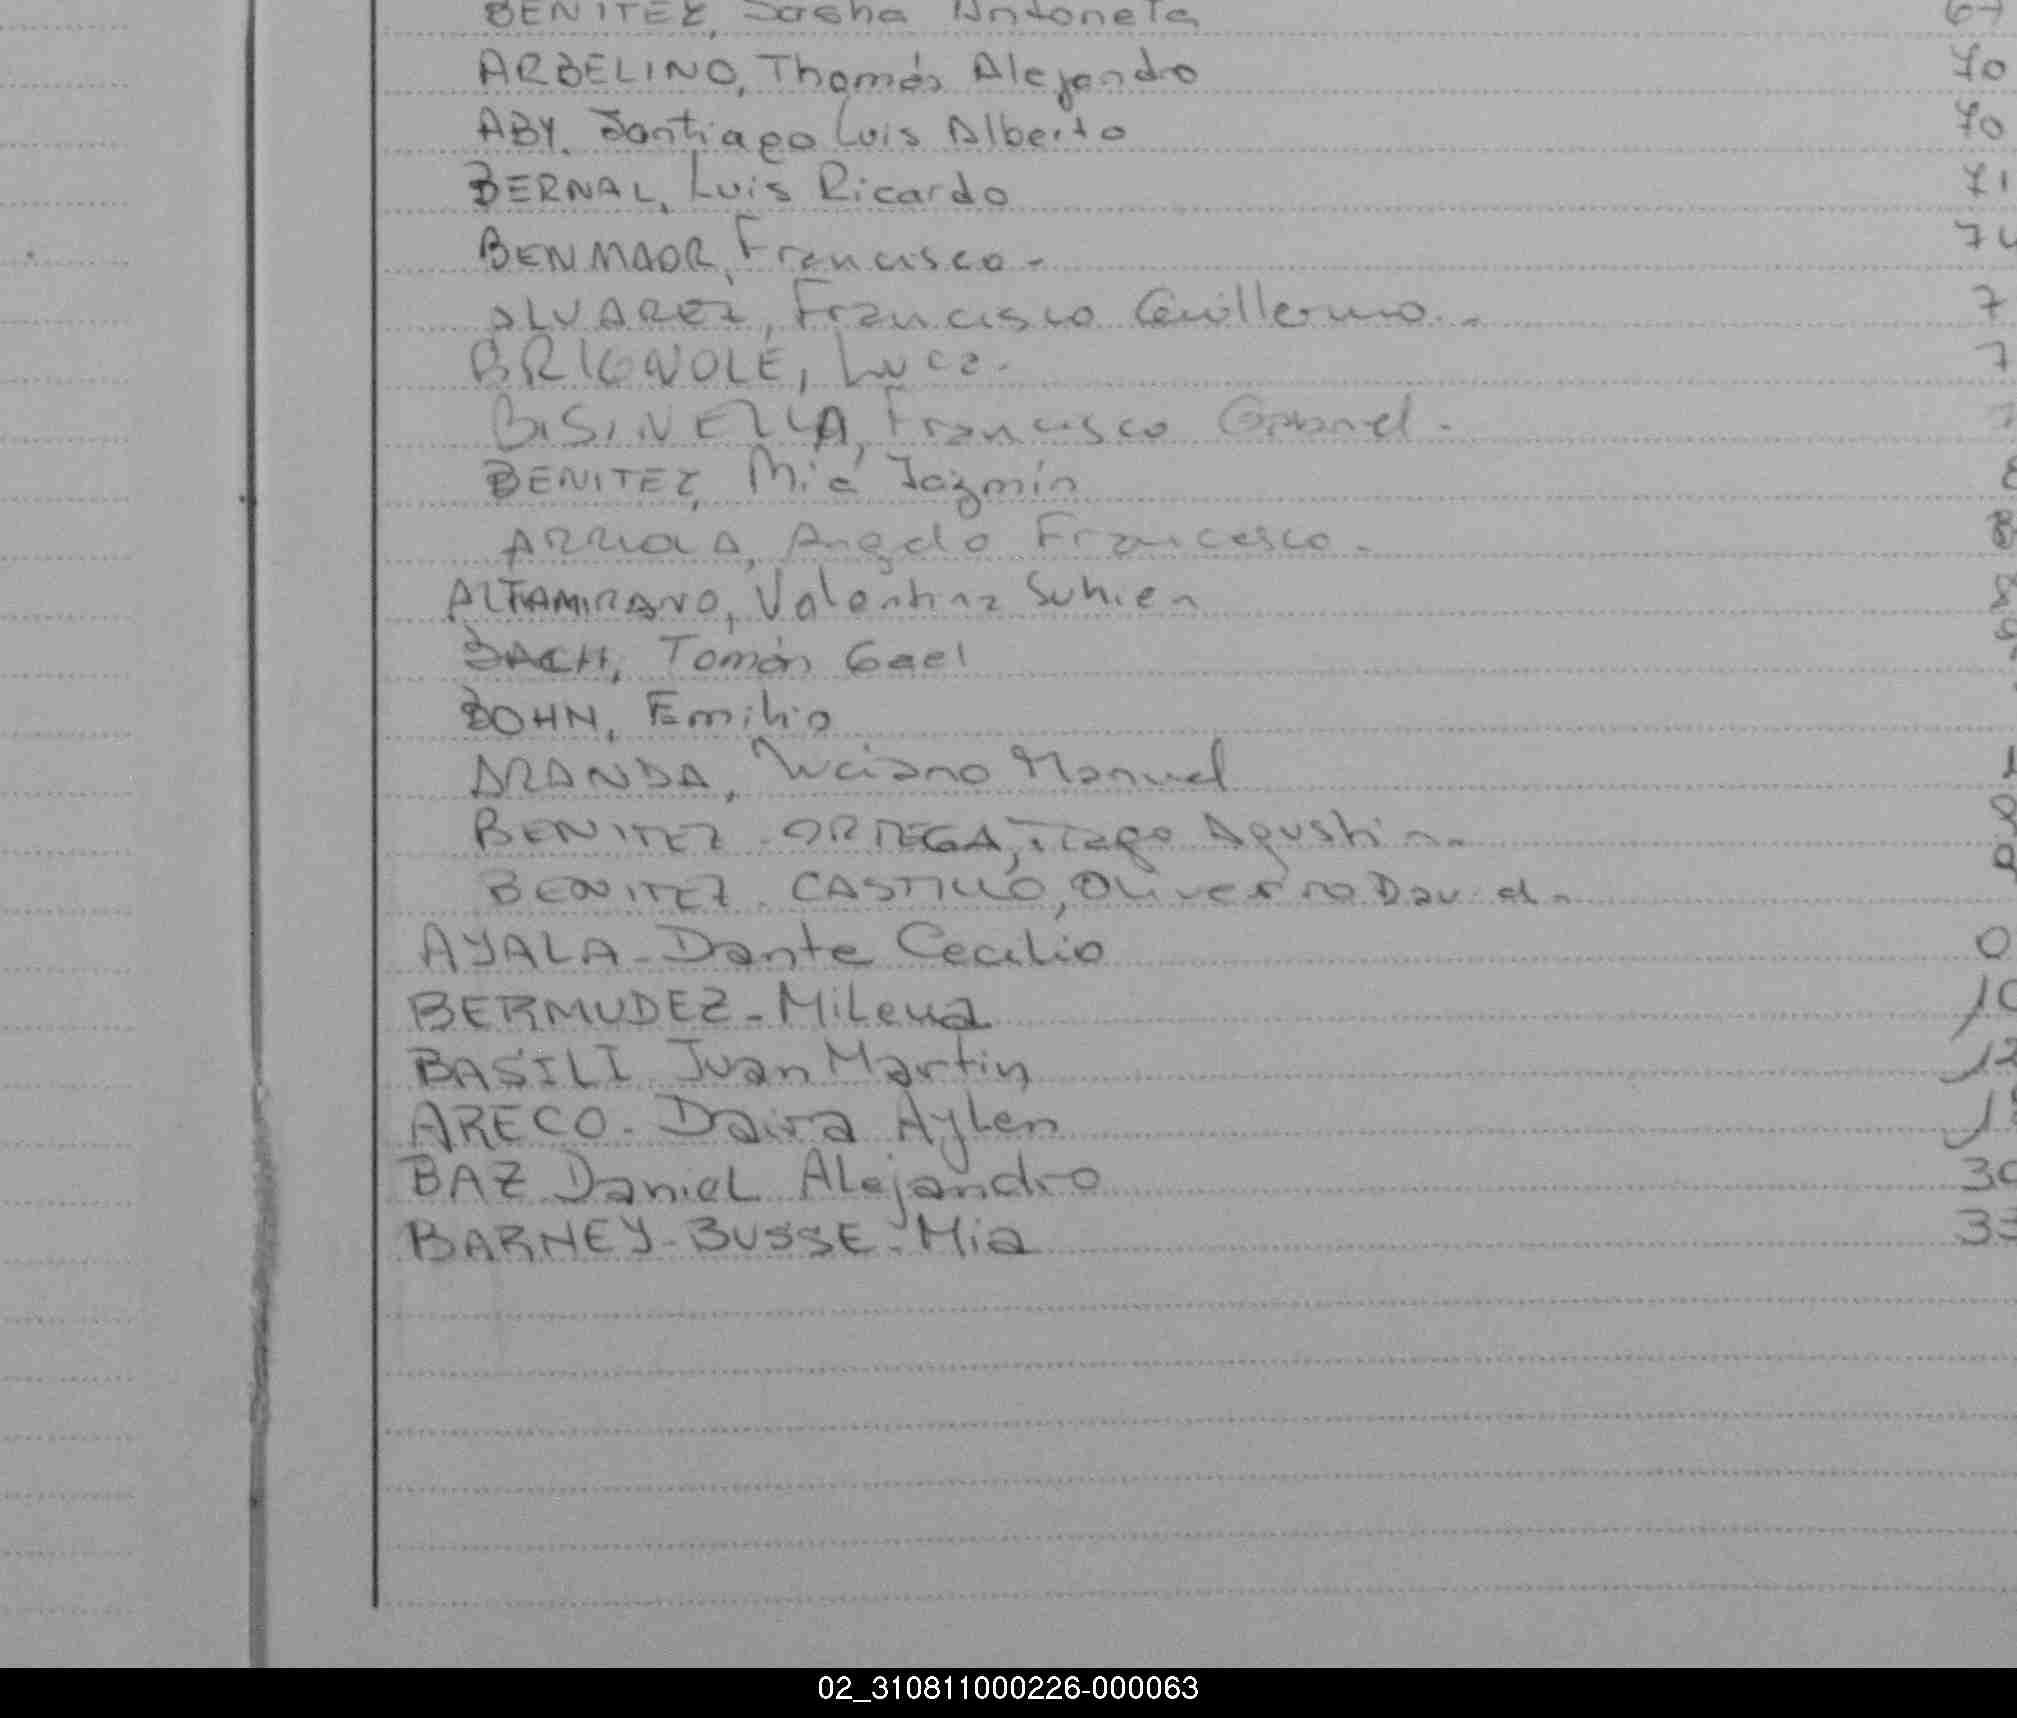 BENITEZ, Sasha Antonela 67
ARBELINO, Thomás Alejandro 70
ABY, Santiago Luis Alberto 70
BERNAL, Luis Ricardo 71
BENMAOR, Francisco - 74
ALVAREZ, Francisco Guillermo. - 7
BRIGNOLE, Luca - 7
BISINELLA, Francisco Gabriel - 7
BENITEZ, Mía Jazmín 8
ARRIOLA, Angelo Francesco - 8
ALTAMIRANO, Valentina Suhien 8
BACH, Tomás Gael
BOHN, Emilio
ARANDA, Luciano Manuel 1
BENITEZ - ORTEGA, Tiago Agustín - 9
BENITEZ - CASTILLO, David - 9
AYALA - Dante Cecilio 0
BERMUDEZ - Milena 10
BASILI Juan Martin 12
ARECO - Daira Aylen 1
BAZ Daniel Alejandro 30
BARNEY - BUSSE - Mia 33
02_310811000226-000063